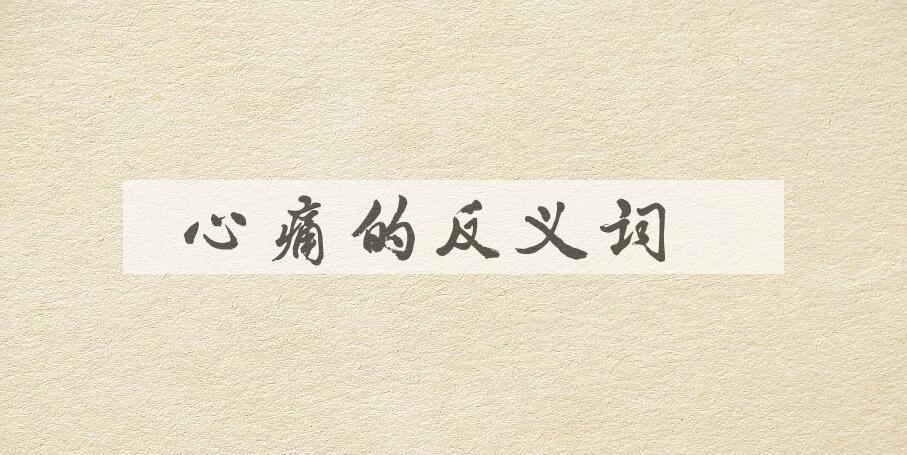 心痛的反义词